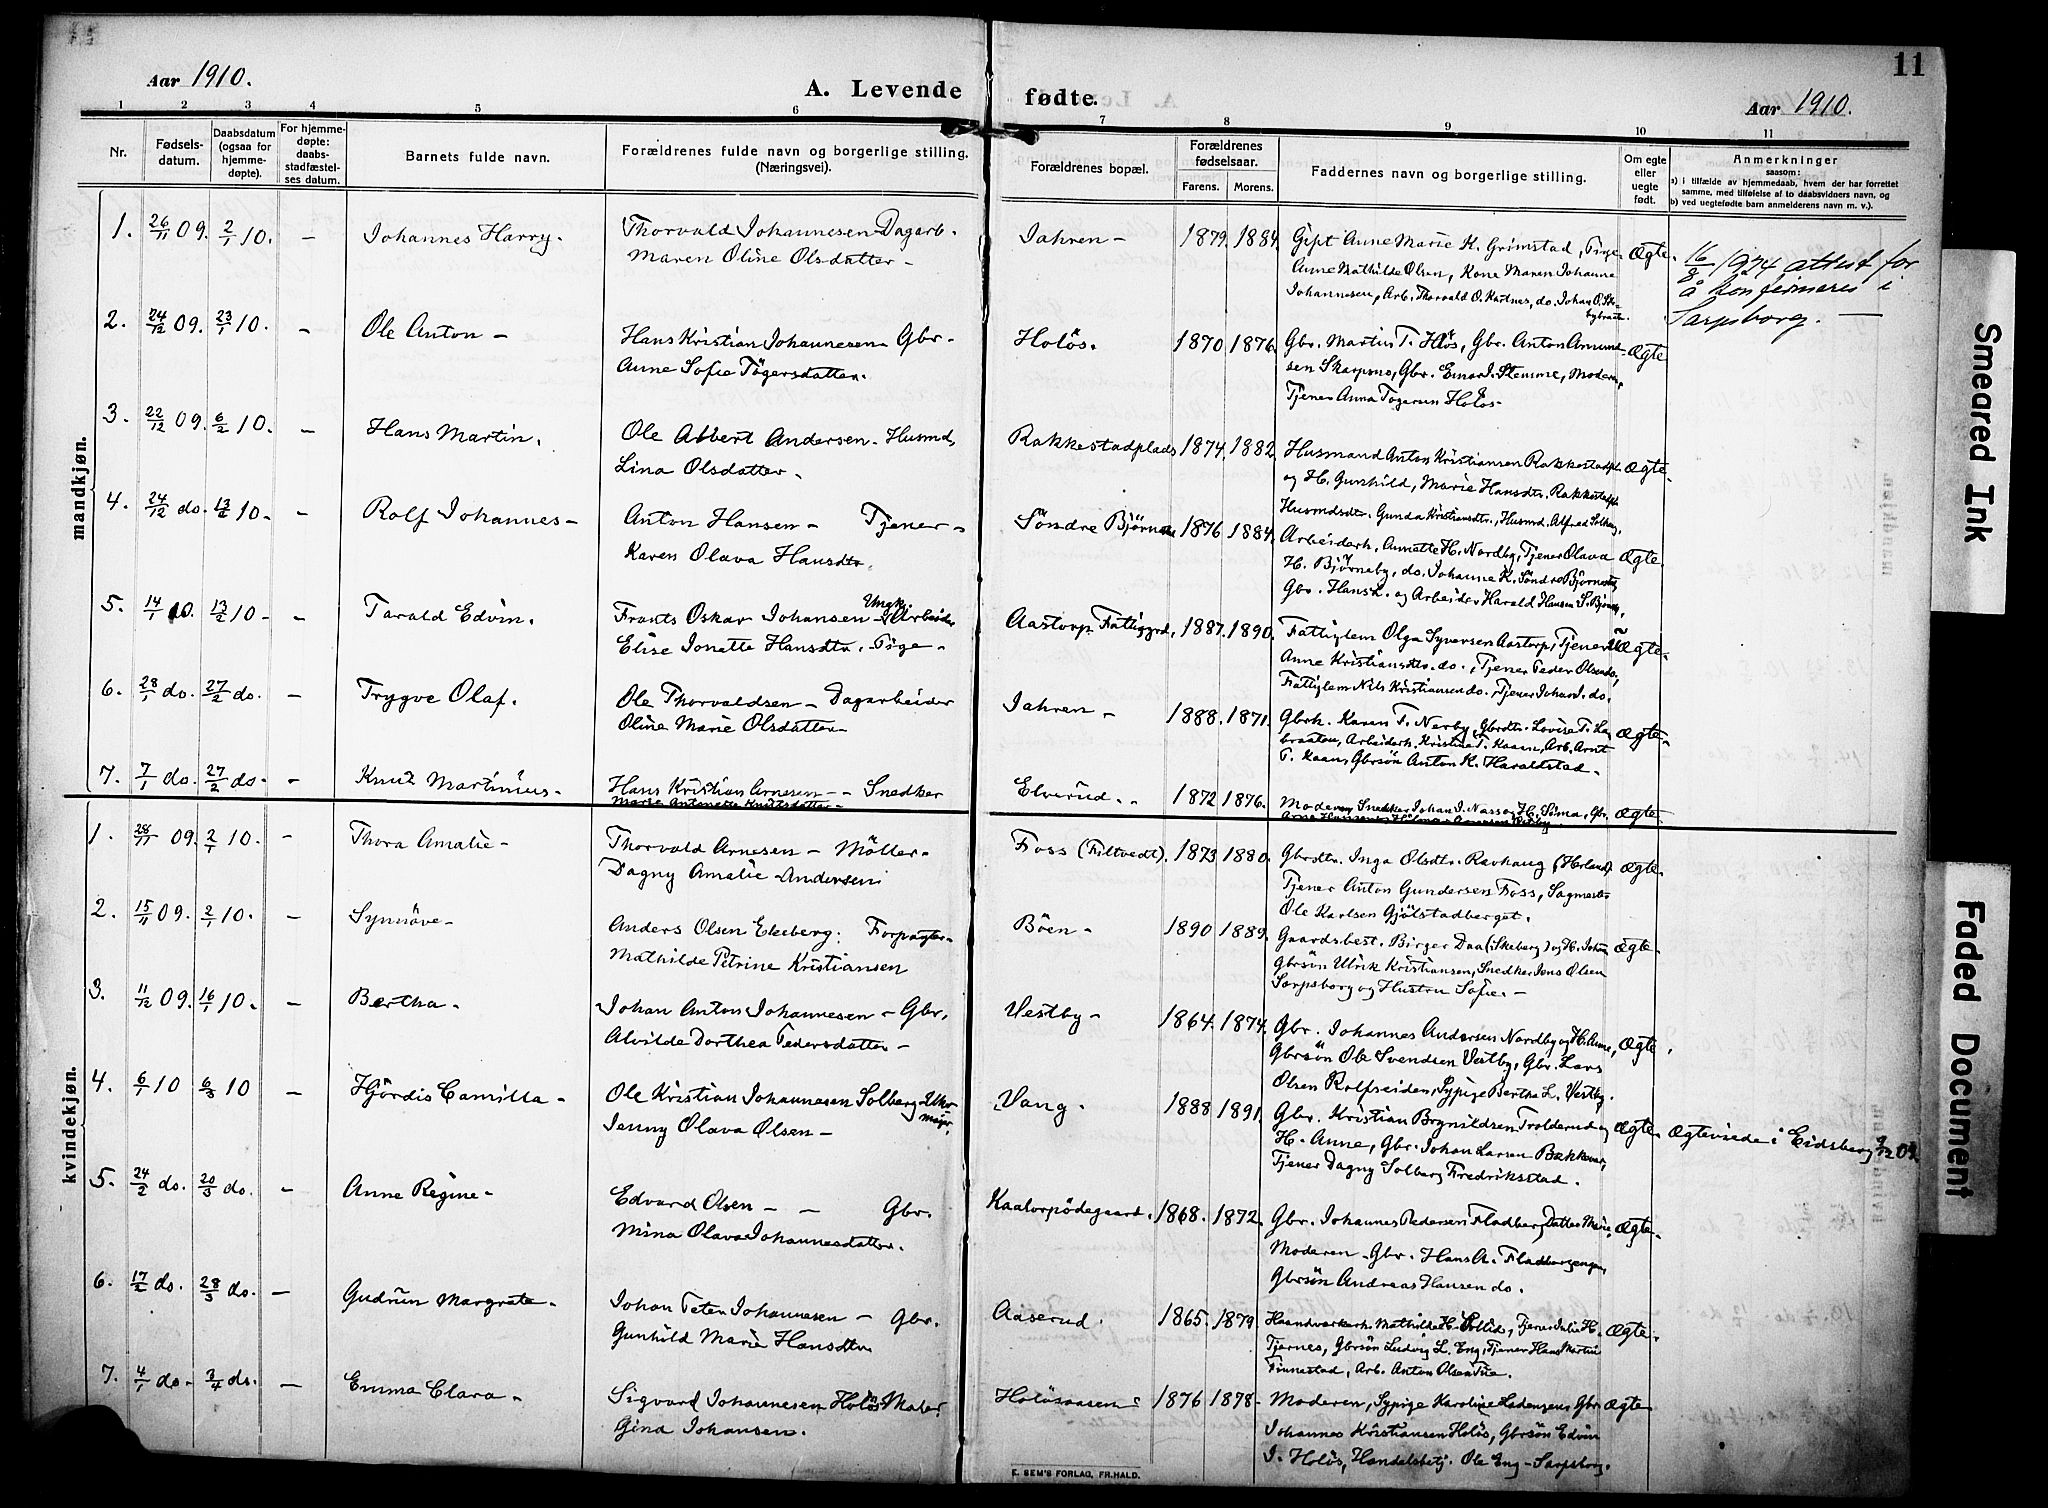 11
Aar 1910.
A. Levende fødte.
Aar 1910.
1 2 3 4 5 6 7 8 9 10 11
Nr.
Fødselsdatum.
Daabsdatum (ogsaa for hjemmedøpte).
For hjemmedøpte: daabsstadfæstelses datum.
Barnets fulde navn.
Forældrenes fulde navn og borgerlige stilling.
(Næringsvei).
Forældrenes bopæl.
Forældrenes fødselsaar.
Farens. Morens.
Faddernes navn og borgerlige stilling.
Om egte eller uegte født.
Anmerkninger
saasom:
a) i tilfælde av hjemmedaab, hvem der har forrettet samme, med tilføielse af to daabsvidners navn, og
b) ved uegtefødte barn anmelderens navn m. v.).
mandkjøn.
1. 26/11 09. 2/1 10. – Johannes Harry. Thorvald Johannesen Dagarb. Jahren – 1879. 1884. Gift Anne Marie H. Grimstad, Pige Ægte. 16/8 1924 attest for
Maren Oline Olsdatter – Anne Mathilde Olsen, Kone Maren Johanne å konfirmeres i
Johannesen, Arb. Thorvald O. Kartnes, do. Johan O. Sarpsborg. —
2. 24/12 09. 23/1 10. – Ole Anton – Hans Kristian Johannesen Gbr – Holös. 1870 1876. Gbr. Martin T. Holös, Gbr. Anton Amund- Ægte
Anne Sofie Tögersdatter. sen Skarpsno, Gbr. Einar I. Stemme, Moderen,
Tjener Anna Togersen Holös.
3. 22/12 09. 6/2 10. – Hans Martin. Ole Albert Andersen. Husmd. Rakkestadplads 1874. 1882. Husmand Anton Kristiansen Rakkestadpl. Ægte
Lina Olsdatter – og H. Gunhild, Marie Hansdt. Rakkestadpl.
Husmdsdtr. Gunda Kristiansdtr., Husmd. Alfred Solberg,
4. 24/12 do. 13/2 10 – – Rolf Johannes – Anton Hansen – Tjener – Söndre Björneby 1876 1884. Arbeiderh. Annette H. Nordby, Tjener Olava Ægte
Karen Olava Hansdtr. H. Björneby, do. Johanne K. Söndre Björneby
Gbr. Hans H. og Arbeider Harald Hansen S. Björneby,
5. 14/1 10. 13/2 10 – – Tarald Edvin. Frants Oskar Johansen – Ungk. Arbeider Aastorp Fattiggrd. 1887. 1890. Fattiglem Olga Syversen Aastorp, Tjener Uægte –
Elise Jonette Hansdtr. Pige – Anne Kristiansdtr. do., Tjener Peder Olsen do,
Fattiglem Nils Kristiansen do., Tjener Johan I. do.
6. 28/1 do. 27/2 do. – Trygve Olaf. Ole Thorvaldsen – Dagarbeider Jahren – 1888. 1871. Gbrk. Karen T. Nerby, Gbrdtr. Lovise T. Ægte –
Oline Marie Olsdatter – braaten, Arbeiderh. Kristine T. Kaasen, Arb. Arnt
T. Kaasa Gbrsön Anton K. Haraldstad –
7. 7/1 do. 27/2 do. – Knut Martinius – Hans Kristian Arnesen – Snedker Elverud. 1872 1876. Moderen, Snedker Johan I. Nasso og H. Soma, Gbr. Ægte
Marie Antonette Knutsdatter –
kvindekjøn.
1. 28/11 09. 2/1 10. – Thora Amalie – Thorvald Arnesen – Möller – Foss (Filtvedt). 1873 1880. Gbrdtr. Inga Olsdtr. Ravhaug (Herland) Ægte –
Dagny Amalie Andersen Tjener Anton Gundersen Foss, Sagmester
Ole Karlsen Gjölstadberget.
2. 15/11 09. 2/1 10. – Synnöve – Anders Olsen Ekeberg. Forpagter – Böen – 1890 1889. Gaardsbest. Birger Daa (i Skeberg) og H. Ægte –
Mathilde Petrine Kristiansen Gbrsön Ulrik Kristiansen, Snedker Jens Olsen
Sarpsborg og Hustru Sofie. –
3. 11/12 09. 16/1 10. – Bertha – Johan Anton Johannesen – Gbr. Vestby – 1864. 1874. Gbr. Johannes Andersen Nordby og H. Anne, Ægte.
Alvilde Dorthea Pedersdatter – Gbrsön Ole Svendsen Vestby, Gbr. Lars
Olsen Rolfseiden, Sypige Bertha L. Vestby.
4. 6/1 10 6/3 10 – Hjördis Camilla – Ole Kristian Johannesen Solberg Uhrmager. Vang. 1888 1891. Gbr. Kristian Brynildsen Trolderud og Ægte – Ægteviede i Eidsberg 9/12 09.
Jenny Olava Olsen – H. Anne, Gbr. Johan Larsen Bakkene,
Tjener Dagny Solberg Fredrikstad.
5. 24/2 do. 20/3 do. – Anne Regine – Edvard Olsen – – Gbr. Kaatorpödegaard. 1868. 1872. Gbr. Johannes Pedersen Fladberg, Datter Marie, Ægte –
Mina Olava Johannesdatter. Moderen – Gbr. Hans A. Fladbergengen,
Gbrsön Andreas Hansen do.
6. 17/2 do. 28/3 do. – Gudrun Margrete – Johan Peter Johannesen – Gbr. Aaserud. 1865. 1879. Haandverkerh. Mathilde H. Sollid, Tjener Julie H. Ægte –
Gunhild Marie Hansdtr Tjernes, Gbrsön Ludvig L. Eng, Tjener Hans Martin
Finnestad, Arb. Anton Olsen Tue.
7. 4/1 do – 3/4 do. – Emma Clara – Sigvard Johannesen Holös Maler. Holösaasen 1876 1878 – Moderen, Sypige Karoline Gbr Ægte
Gina Johansen. Johannes Kristiansen Holös, Gbrsön Edvin
I. Holös, Handelsbetj. Ole Eng – Sarpsborg.
E. SEM'S FORLAG, FR.HALD.
Smeared Ink
Faded Document